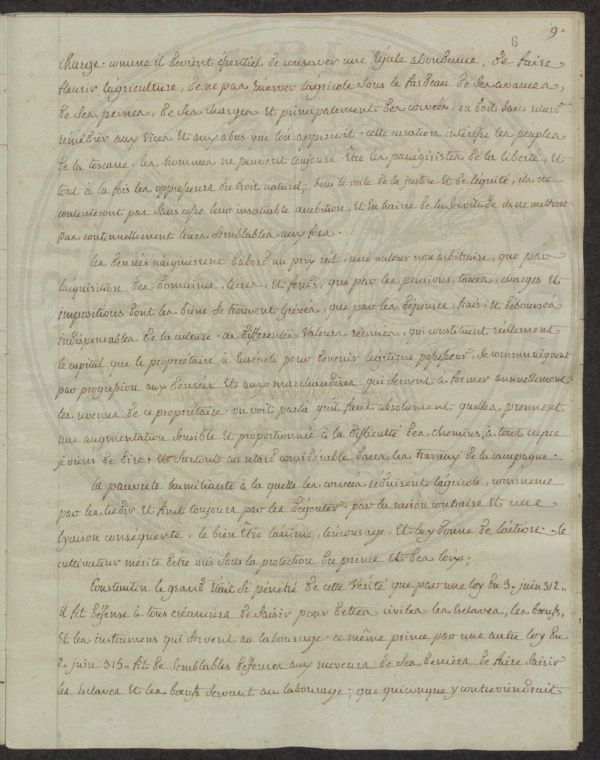 9.
6
charge. comme il devient essentiel de conserver une Egale abondance, de faire
fleurir l'agriculture, de ne pas Enerver l'agricole sous le fardeau de ses avances,
de ses peines, de ses charges Et principalement des corvées, on doit sans retard
remédier aux vices Et aux abus que l'on apperçoit. cette curation intéresse les peuples
de la toscane. les hommes ne peuvent toujours Etre les panégiristes de la liberté, Et
tout à la fois les oppresseurs du droit naturel; sous le voile de la justice Et de l'equité, ils ne
contenteront pas sans cesse leur insatiable ambition, Et En haine de la servitude ils ne mettront
pas continuellement leurs semblables aux fers.
les denrées n'acquerrent d'abord un prix réel, une valeur non arbitraire, que par
l'acquisition des domaines, terres, Et fonds, que par les pensions, taxes, charges Et
impositions dont les biens se trouvent Grévés, que par les dépenses, frais, Et déboursés
indispensables de la culture. ces différentes valeurs réunies, qui constituent réellement
le capital que le propriétaire à pour devenir légitime possesseur, se communiquent
par progression aux denrées Et aux marchandises qui servent à former annuellement
les revenus de ce propriétaire. on voit par la qu'il faut absolument quelles prennent
une augmentation sensible Et proportionnée à la difficulté des chemins, à tout ce que
je viens de dire, Et surtout au retard considérable dans les travaux de la campagne.
la pauvreté humiliante à la quelle les corvées réduisent l'agricole, commence
par les tiédir Et finit toujours par les dégouter. par la raison contraire Et une
lyaison conséquente, le bien Etre l'anime, l'encourage, Et luy donne de l'action. Le
cultivateur mérite d'etre mis sous la protection du prince Et des loix.
Constantin le grand Etait si pénétré de cette vérité que par une loy du 3. juin 312.
il fit défense à tous créanciers de saisir pour dettes civiles les Esclaves, les bœufs,
Et les instrumens qui servent au labourage. ce même prince par une autre loy du
2. juin 315. fit de semblables défenses aux receveurs de ses deniers de faire saisir
les Esclaves Et les bœufs servant au labourage; que quiconque y contreviendrait